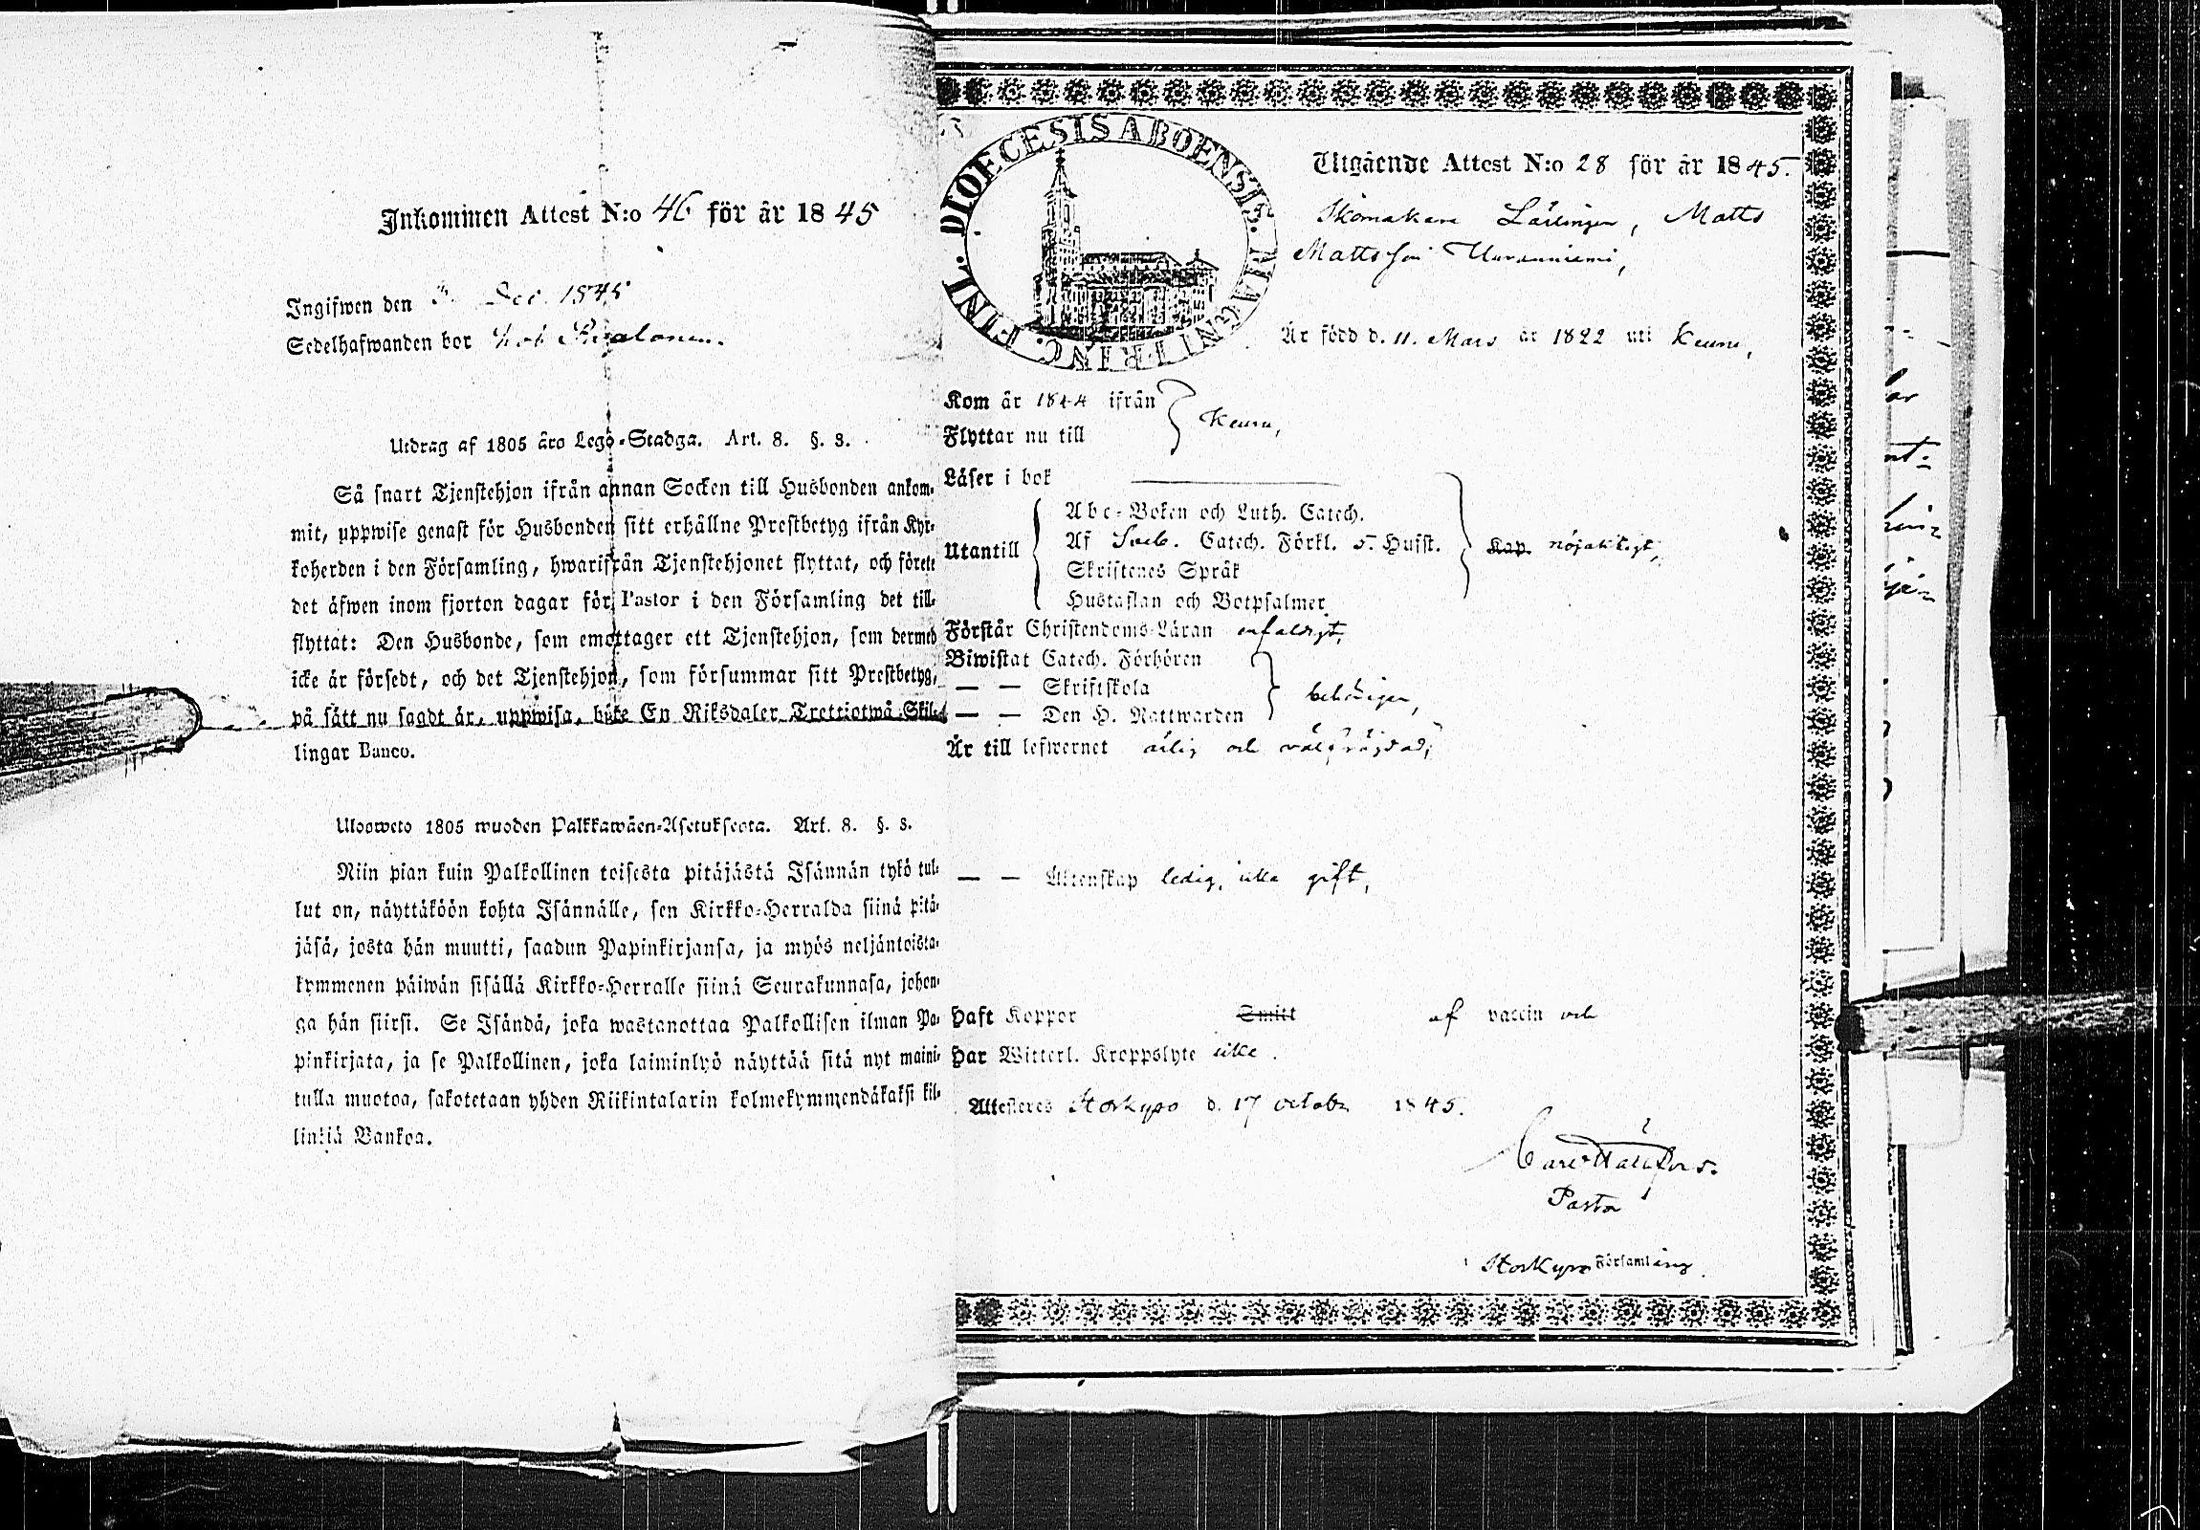 Inkommen Attest N:o 46 för år 1845
Ingifwen den Dec. 1845
Sedelhafwanden bor
Utdrag af 1805 års Lego-Stadga. Art. 8. §. 3.
Så snart Tjenstehjon ifrån annan Socken till Husbonden ankom-
mit, uppwise genast för Husbonden sitt erhållne Prestbetyg ifrån Kyr-
koherden i den Församling, hwarifrån Tjenstehjonet flyttat, och förete
det äfwen inom fjorton dagar för Pastor i den Församling det till-
flyttat: Den Husbonde, som emottager ett Tjenstehjon, som dermed
icke är försedt, och det Tjenstehjon, som försummar sitt Prestbetyg,
på sätt nu sagdt är, uppwisa, böte En Riksdaler Trettiotwå Skil-
lingar Banco.
Ulosweto 1805 wuoden Palkkawäen-Asetuksesta. Art. 8. §. 3.
Niin pian kuin Palkollinen toisesta pitäjästä Isännän tykö tul-
lut on, näyttäköön kohta Isännälle, sen Kirkko-Herralda siinä pitä-
jäsä, josta hän muutti, saadun Papinkirjansa, ja myös neljäntoista-
kymmenen päiwän sisällä Kirkko-Herralle siinä Seurakunnasa, johon-
ga hän siirsi. Se Isändä, joka wastanottaa Palkollisen ilman Pa-
pinkirjata, ja se Palkollinen, joka laiminlyö näyttää sitä nyt maini-
tulla muotoa, sakotetaan yhden Riikintalarin kolmekymmendäkaksi kil-
linkiä Bankoa.
DIOECESIS ABOENSIS. MAGNI PRINC. FINL.
Utgående Attest N:o 28 för år 1845.
Skomakare Lärlingen, Matts
Matts Son
Är född d. 11. Mars år 1822 uti Keuru,
Kom år 1844 ifrån
Flyttar nu till
Keuru,
Läser i bok
Utantill
Abc-Boken och Luth. Catech.
Af Sveb. Catech. Förkl. o. Husft.
Skriftenes Språk
Hustaflan och Botpsalmer
Kap. nöjaktigt,
Förstår Christendoms-Läran enfaldigt,
Biwistat Catech. Förhören
— — Skriftskola
— — Den H. Nattwarden
behörigen,
Är till lefwernet ärlig och välfrägdad,
— — Äktenskap ledig, icke gift,
Haft Koppor Smitt af vaccin och
Har Witterl. Kroppslyte icke.
Attesteres Storkyro d. 17 October 1845.
Pastor
Storkyro Församling